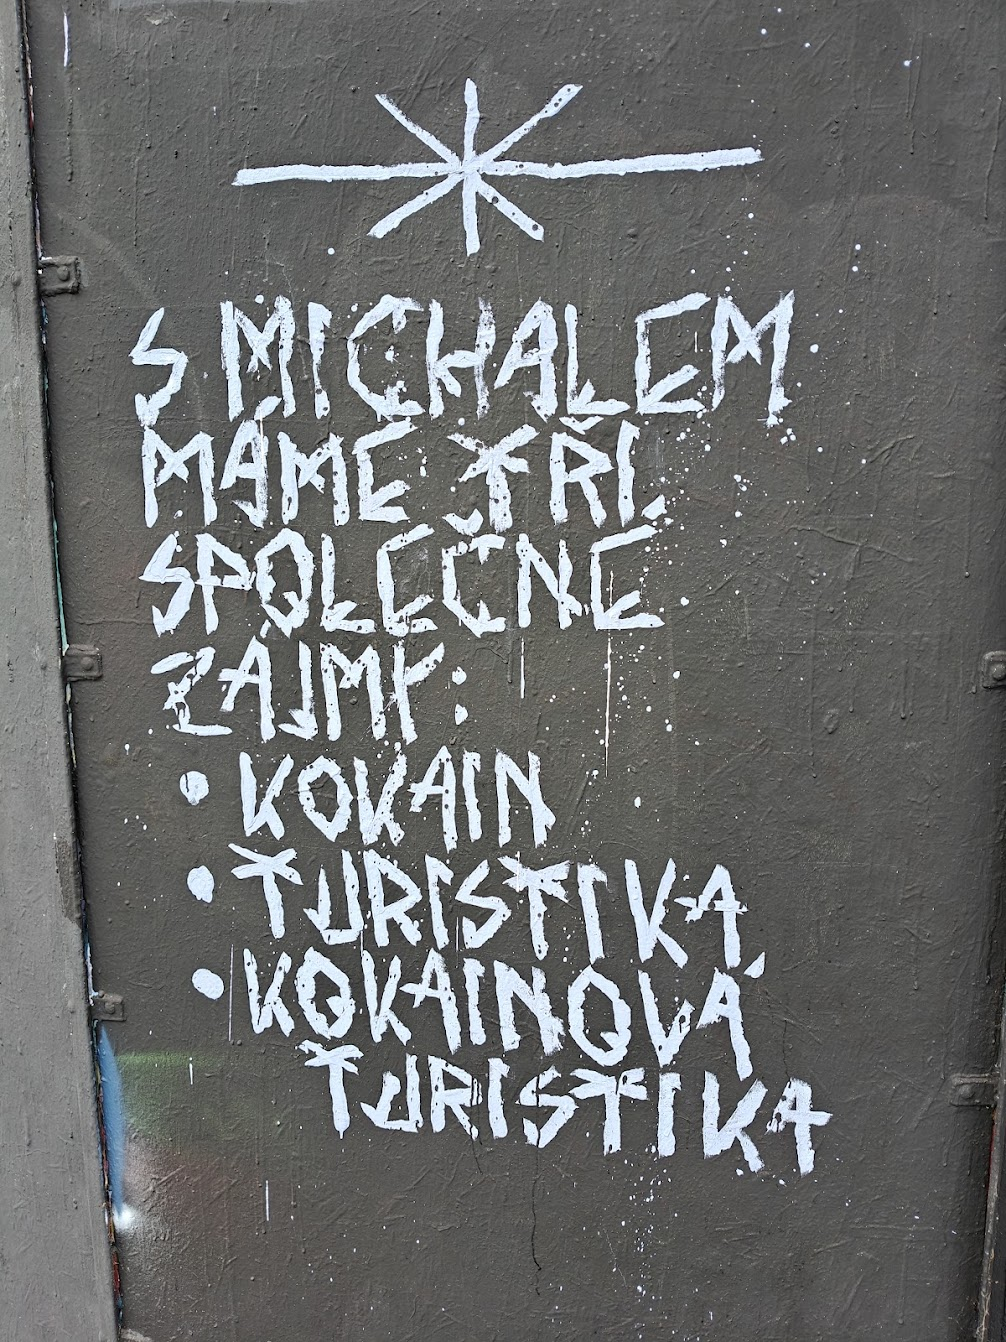 S MICHALEM
MÁME TŘI
SPOLEČNÉ
ZÁJMY:
• KOKAIN
• TURISTIKA
• KOKAINOVÁ
TURISTIKA